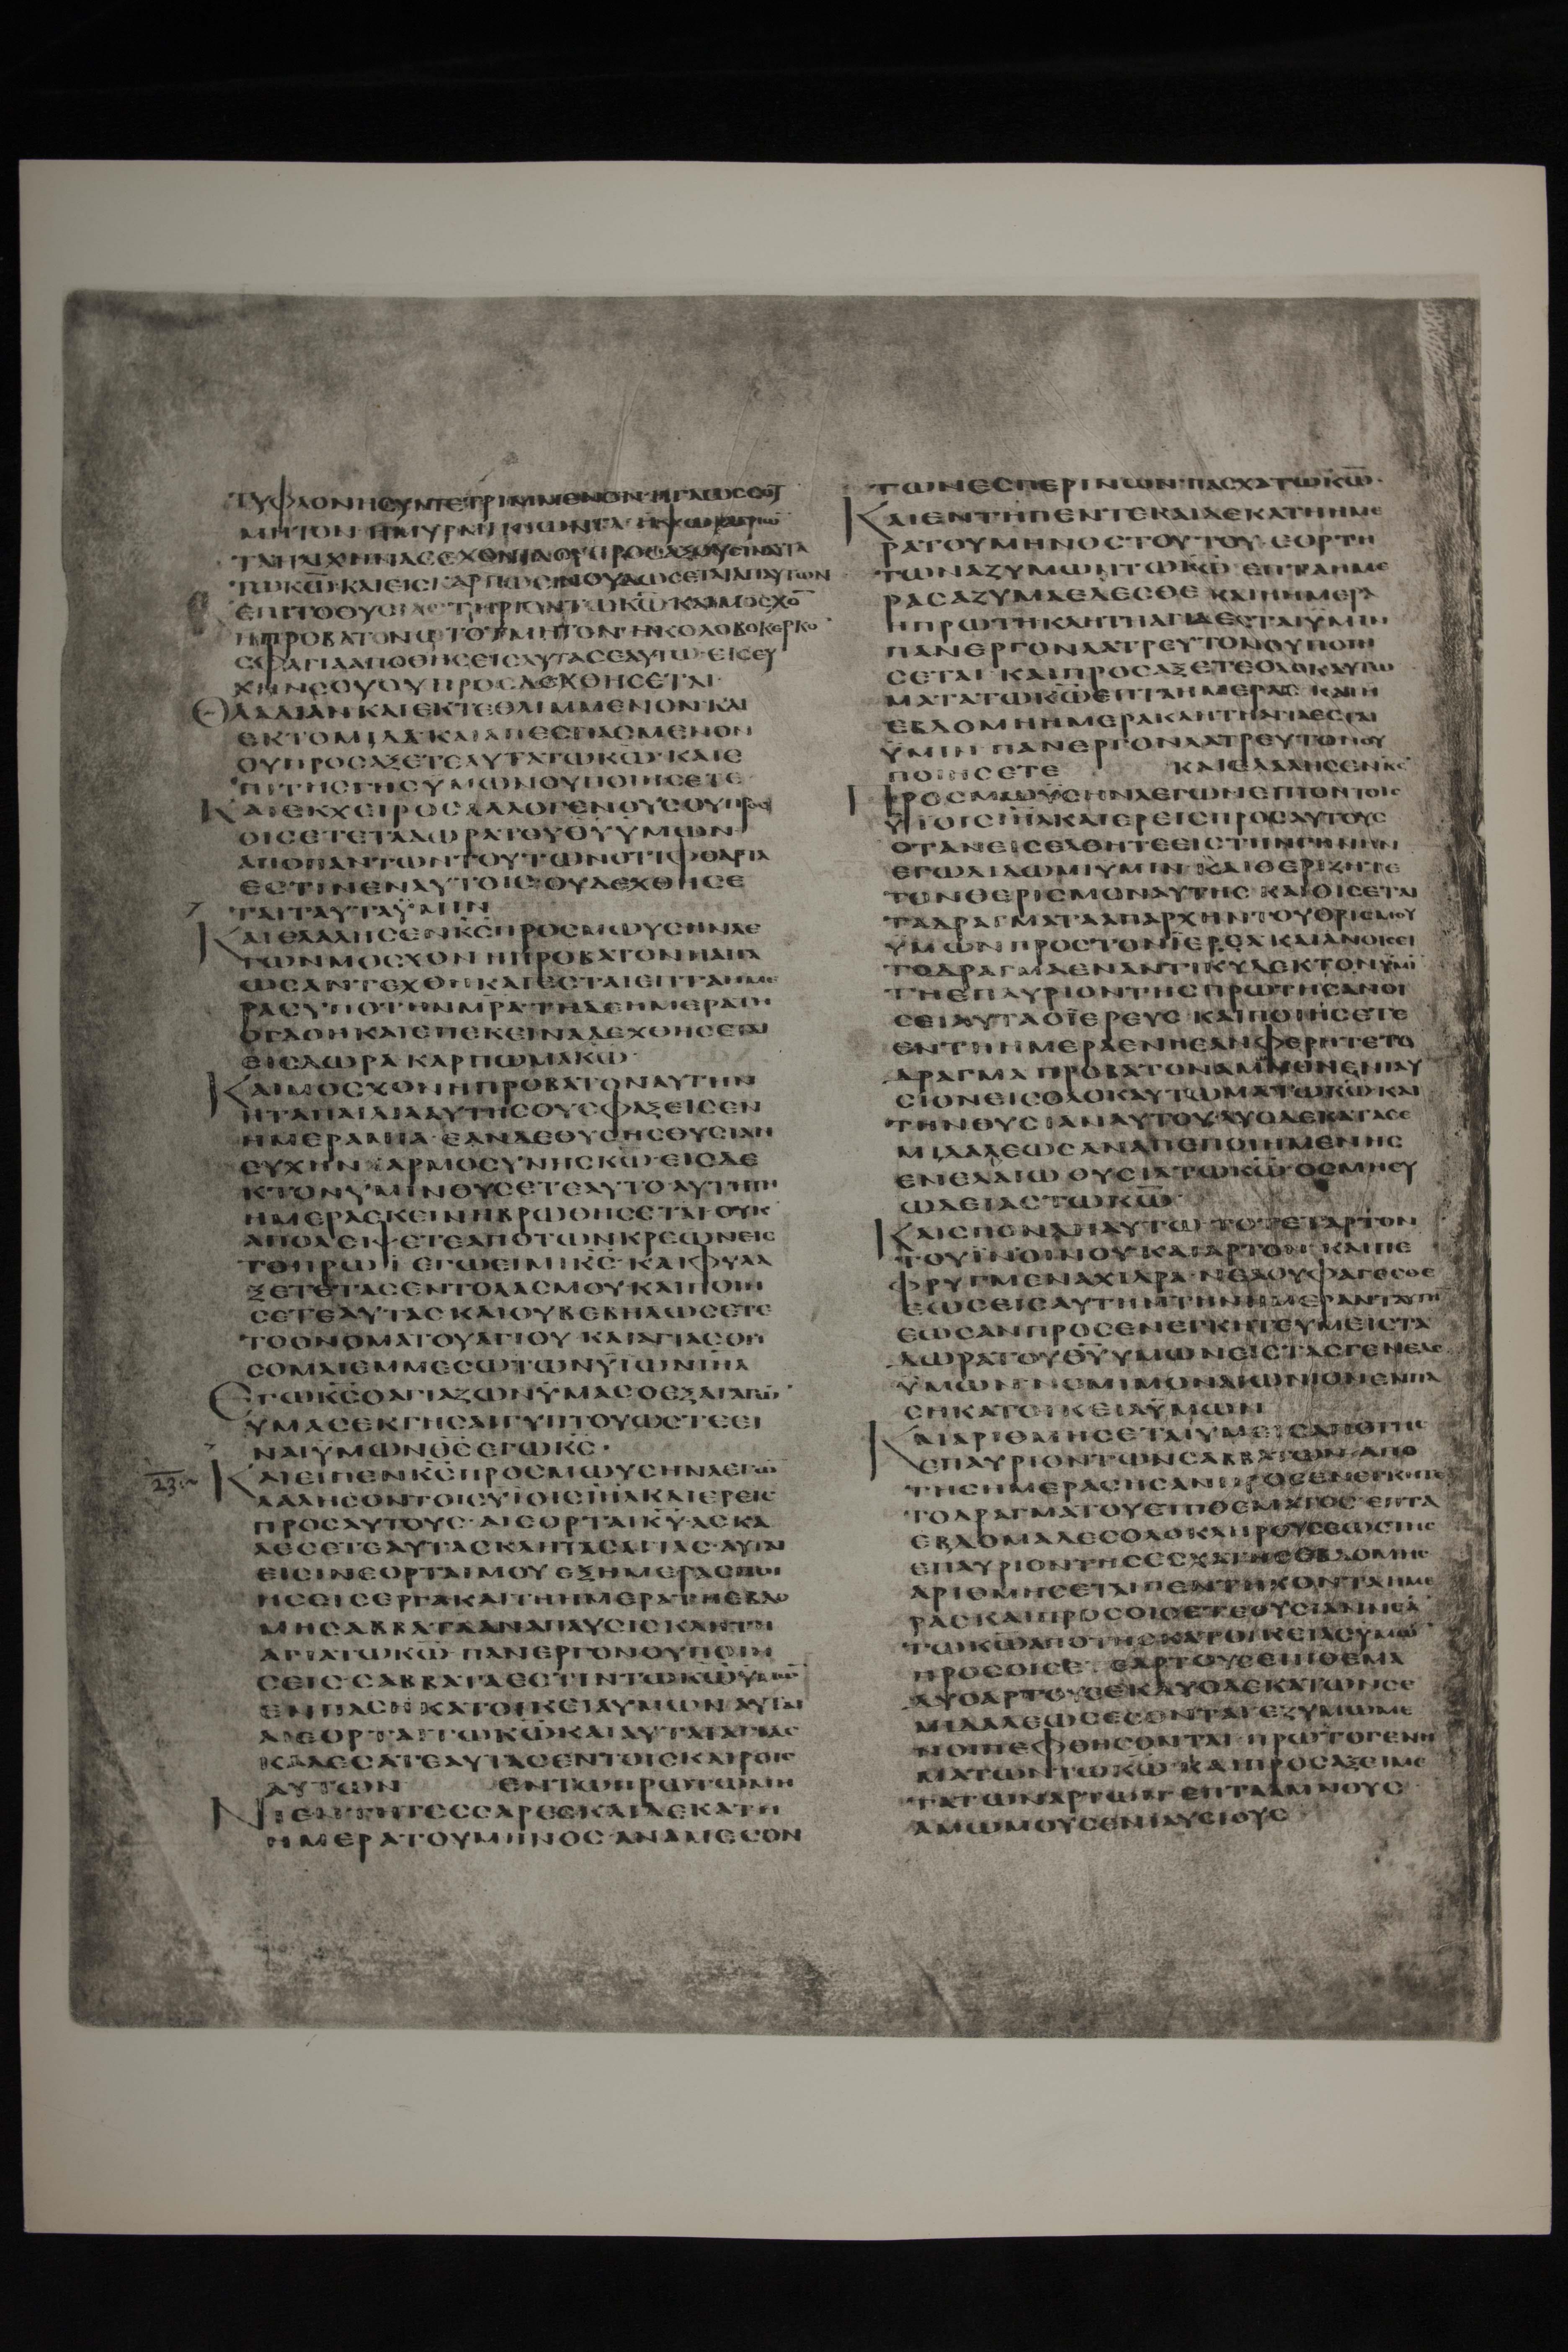 ΤΥΦΛΟΝΗΣΥΝΤΕΤΡΙΜΜΕΝΟΝΗΓΛΩΣΣΟΤ
ΜΗΤΟΝΗΜΥΡΜΗΚΙΩΝΤΑ
ΤΩΚ̅Ω̅ΚΑΙΕΙΣΚΑΡΠΩΣΙΝΟΥΔΩΣΕΤΑΙΑΠΑΥΤΩΝ
ΕΠΙΤΟΘΥΣΙΑΣΤΗΡΙΟΝΤΩΚ̅Ω̅ΚΑΙΜΟΣΧΟ̅
ΗΠΡΟΒΑΤΟΝΩΤΟΤΜΗΤΟΝ·ΗΚΟΛΟΒΟΚΕΡΚΟ̅
ΣΦΑΓΙΑΑΠΟΘΗΣΕΙΣΑΥΤΑΣΕΑΥΤΩ·ΕΙΣΕΥ
ΧΗΝΣΟΥΟΥΠΡΟΣΔΕΧΘΗΣΕΤΑΙ·
ΘΛΑΔΙΑΝΚΑΙΕΚΤΕΘΛΙΜΜΕΝΟΝΚΑΙ
ΕΚΤΟΜΙΔΑΚΑΙΑΠΕΣΠΑΣΜΕΝΟΝ
ΟΥΠΡΟΣΑΞΕΤΕΑΥΤΑΤΩΚ̅Ω̅·ΚΑΙΕ
ΠΙΤΗΣΓΗΣΥΜΩΝΟΥΠΟΙΗΣΕΤΕ·
ΚΑΙΕΚΧΕΙΡΟΣΑΛΛΟΓΕΝΟΥΣΟΥΠΡΟΣ
ΟΙΣΕΤΕΤΑΔΩΡΑΤΟΥΘ̅Υ̅ΫΜΩΝ·
ΑΠΟΠΑΝΤΩΝΤΟΥΤΩΝΟΤΙΦΘΑΡΜΑ
ΕΣΤΙΝΕΝΑΥΤΟΙΣ·ΟΥΔΕΧΘΗΣΕ
ΤΑΙΤΑΥΤΑΫΜΙΝ
ΚΑΙΕΛΑΛΗΣΕΝΚ̅Σ̅ΠΡΟΣΜΩΥΣΗΝΛΕ
ΓΩΝΜΟΣΧΟΝΗΠΡΟΒΑΤΟΝΗΑΙΓΑ
ΩΣΑΝΤΕΧΘΗΚΑΙΕΣΤΑΙΕΠΤΑΗΜΕ
ΡΑΣΥΠΟΤΗΝΜ̅Ρ̅Α̅ΤΗΔΕΗΜΕΡΑΤΗ
ΟΓΔΟΗΚΑΙΕΠΕΚΕΙΝΑΔΕΧΘΗΣΕΤΑΙ
ΕΙΣΔΩΡΑΚΑΡΠΩΜΑΚ̅Ω̅·
ΚΑΙΜΟΣΧΟΝΗΠΡΟΒΑΤΟΝΑΥΤΗΝ
ΗΤΑΠΑΙΔΙΑΑΥΤΗΣΟΥΣΦΑΞΕΙΣΕΝ
ΗΜΕΡΑΜΙΑ·ΕΑΝΔΕΘΥΣΗΣΘΥΣΙΑΝ
ΕΥΧΗΝΧΑΡΜΟΣΥΝΗΣΚ̅Ω̅·ΕΙΣΔΕ
ΚΤΟΝΥΜΙΝΘΥΣΕΤΕΑΥΤΟ·ΑΥΤΗΤΗ
ΗΜΕΡΑΕΚΕΙΝΗΒΡΩΘΗΣΕΤΑΙ·ΟΥΚ
ΑΠΟΛΕΙΨΕΤΕΑΠΟΤΩΝΚΡΕΩΝΕΙΣ
ΤΟΠΡΩΙΕΓΩΕΙΜΙΚ̅Σ̅·ΚΑΙΦΥΛΑ
ΞΕΤΕΤΑΣΕΝΤΟΛΑΣΜΟΥΚΑΙΠΟΙΗ
ΣΕΤΕΑΥΤΑΣΚΑΙΟΥΒΕΒΗΛΩΣΕΤΕ
ΤΟΟΝΟΜΑΤΟΥΑΓΙΟΥ·ΚΑΙΑΓΙΑΣΘΗ
ΣΟΜΑΙΕΜΜΕΣΩΤΩΝΫΙΩΝΙ̅Η̅Λ̅
ΕΓΩΚ̅Σ̅ΟΑΓΙΑΖΩΝΫΜΑΣΟΕΞΑΓΑΓΩ̅
ΫΜΑΣΕΚΓΗΣΑΙΓΥΠΤΟΥΩΣΤΕΕΙ
ΝΑΙΫΜΩΝΘ̅Σ̅ΕΓΩΚ̅Σ̅·
23
ΚΑΙΕΙΠΕΝΚ̅Σ̅ΠΡΟΣΜΩΥΣΗΝΛΕΓΩ̅
ΛΑΛΗΣΟΝΤΟΙΣΫΙΟΙΣΙ̅Η̅Λ̅ΚΑΙΕΡΕΙΣ
ΠΡΟΣΑΥΤΟΥΣ·ΑΙΕΟΡΤΑΙΚ̅Υ̅·ΑΣΚΑ
ΛΕΣΕΤΕΑΥΤΑΣΚΛΗΤΑΣΑΓΙΑΣ·ΑΥΤΑΙ
ΕΙΣΙΝΕΟΡΤΑΙΜΟΥΕΞΗΜΕΡΑΣΠΟΙ
ΗΣΕΙΣΕΡΓΑΚΑΙΤΗΗΜΕΡΑΤΗΕΒΔΟ
ΜΗΣΑΒΒΑΤΑΑΝΑΠΑΥΣΙΣΚΛΗΤΗ
ΑΓΙΑΤΩΚ̅Ω̅·ΠΑΝΕΡΓΟΝΟΥΠΟΙΗ
ΣΕΙΣ·ΣΑΒΒΑΤΑΕΣΤΙΝΤΩΚ̅Ω̅ΫΜΩ̅
ΕΝΠΑΣΗΚΑΤΟΙΚΕΙΑΥΜΩΝΑΥΤΑΙ
ΑΙΕΟΡΤΑΙΤΩΚ̅Ω̅ΚΑΙΑΥΤΑΙΑΓΙΑΣ
ΚΑΛΕΣΑΤΕΑΥΤΑΣΕΝΤΟΙΣΚΑΙΡΟΙΣ
ΑΥΤΩΝ ΕΝΤΩΠΡΩΤΩΜΗ
ΝΙΕΝΤΗΤΕΣΣΑΡΕΣΚΑΙΔΕΚΑΤΗ
ΗΜΕΡΑΤΟΥΜΗΝΟΣ·ΑΝΑΜΕΣΟΝ
ΤΩΝΕΣΠΕΡΙΝΩΝ·ΠΑΣΧΑΤΩΚ̅Ω̅·
ΚΑΙΕΝΤΗΠΕΝΤΕΚΑΙΔΕΚΑΤΗΗΜΕ
ΡΑΤΟΥΜΗΝΟΣΤΟΥΤΟΥ·ΕΟΡΤΗ
ΤΩΝΑΖΥΜΩΝΤΩΚ̅Ω̅·ΕΠΤΑΗΜΕ
ΡΑΣΑΖΥΜΑΕΔΕΣΘΕΚΑΙΗΗΜΕΡΑ
ΗΠΡΩΤΗΚΛΗΤΗΑΓΙΑΕΣΤΑΙΫΜΙΝ
ΠΑΝΕΡΓΟΝΛΑΤΡΕΥΤΟΝΟΥΠΟΙΗ
ΣΕΤΑΙ·ΚΑΙΠΡΟΣΑΞΕΤΕΟΛΟΚΑΥΤΩ
ΜΑΤΑΤΩΚ̅Ω̅ΕΠΤΑΗΜΕΡΑΣ·ΚΑΙΗ
ΕΒΔΟΜΗΗΜΕΡΑΚΛΗΤΗΑΓΙΑΕΣΤΑΙ
ΫΜΙΝ·ΠΑΝΕΡΓΟΝΛΑΤΡΕΥΤΟΝΟΥ
ΠΟΙΗΣΕΤΕ ΚΑΙΕΛΑΛΗΣΕΝΚ̅Σ̅
ΠΡΟΣΜΩΫΣΗΝΛΕΓΩΝΕΙΠΟΝΤΟΙΣ
ΫΙΟΙΣΙ̅Η̅Λ̅ΚΑΙΕΡΕΙΣΠΡΟΣΑΥΤΟΥΣ
ΟΤΑΝΕΙΣΕΛΘΗΤΕΕΙΣΤΗΝΓΗΝΗΝ
ΕΓΩΔΙΔΩΜΙΥΜΙΝ·ΚΑΙΘΕΡΙΖΗΤΕ
ΤΟΝΘΕΡΙΣΜΟΝΑΥΤΗΣ·ΚΑΙΟΙΣΕΤΑΙ
ΤΑΔΡΑΓΜΑΤΑΑΠΑΡΧΗΝΤΟΥΘΡΙΣΜΟΥ
ΥΜΩΝΠΡΟΣΤΟΝΪΕΡΕΑΚΑΙΑΝΟΙΣΕΙ
ΤΟΔΡΑΓΜΑΕΝΑΝΤΙΚ̅Υ̅ΔΕΚΤΟΝΫΜΙ̅
ΤΗΕΠΑΥΡΙΟΝΤΗΣΠΡΩΤΗΣΑΝΟΙ
ΣΕΙΑΥΤΑΟΪΕΡΕΥΣ·ΚΑΙΠΟΙΗΣΕΤΕ
ΕΝΤΗΗΜΕΡΑΕΝΗΕΑΝΦΕΡΗΤΕΤΟ
ΔΡΑΓΜΑΠΡΟΒΑΤΟΝΑΜΩΜΟΝΕΝΙΑΥ
ΣΙΟΝΕΙΣΟΛΟΚΑΥΤΩΜΑΤΩΚ̅Ω̅ΚΑΙ
ΤΗΝΘΥΣΙΑΝΑΥΤΟΥ·ΔΥΟΔΕΚΑΤΑΣΕ
ΜΙΔΑΛΕΩΣΑΝΑΠΕΠΟΙΗΜΕΝΗΣ
ΕΝΕΛΑΙΩΘΥΣΙΑΤΩΚ̅Ω̅ΟΣΜΗΕΥ
ΩΔΕΙΑΣΤΩΚ̅Ω̅·
ΚΑΙΣΠΟΝΔΗΑΥΤΩ·ΤΟΤΕΤΑΡΤΟΝ
ΤΟΥΪΝΟΙΝΟΥΚΑΙΑΡΤΟΝ·ΚΑΙΠΕ
ΦΡΥΓΜΕΝΑΧΙΔΡΑ·ΝΕΑΟΥΦΑΓΕΣΘΕ
ΕΩΣΕΙΣΑΥΤΗΝΤΗΝΗΜΕΡΑΝΤΑΥΤΗ̅
ΕΩΣΑΝΠΡΟΣΕΝΕΓΚΗΤΕΥΜΕΙΣΤΑ
ΔΩΡΑΤΟΥΘ̅Υ̅ΥΜΩΝΕΙΣΤΑΣΓΕΝΕΑΣ
ΫΜΩΝ·ΝΟΜΙΜΟΝΑΙΩΝΙΟΝΕΝΠΑ
ΣΗΚΑΤΟΙΚΕΙΑΫΜΩΝ
ΚΑΙΑΡΙΘΜΗΣΕΤΑΙΥΜΕΙΣΑΠΟΤΗΣ
ΕΠΑΥΡΙΟΝΤΩΝΣΑΒΒΑΤΩΝ·ΑΠΟ
ΤΗΣΗΜΕΡΑΣΗΣΑΝΠΡΟΣΕΝΕΓΚΗΤΕ
ΤΟΔΡΑΓΜΑΤΟΥΕΠΙΘΕΜΑΤΟΣ·ΕΠΤΑ
ΕΒΔΟΜΑΔΕΣΟΛΟΚΛΗΡΟΥΣΕΩΣΤΗΣ
ΕΠΑΥΡΙΟΝΤΗΣΕΣΧΑΤΗΣΕΒΔΟΜΗΣ
ΑΡΙΘΜΗΣΕΤΑΙΠΕΝΤΗΚΟΝΤΑΗΜΕ
ΡΑΣΚΑΙΠΡΟΣΟΙΣΕΤΕΘΥΣΙΑΝΝΕΑ̅
ΤΩΚ̅Ω̅ΑΠΟΤΗΣΚΑΤΟΙΚΕΙΑΣΥΜΩ̅
ΠΡΟΣΟΙΣΕΤΕΑΡΤΟΥΣΕΠΙΘΕΜΑ
ΔΥΟΑΡΤΟΥΣΕΚΔΥΟΔΕΚΑΤΩΝΣΕ
ΜΙΔΑΛΕΩΣΕΣΟΝΤΑΙΕΖΥΜΩΜΕ
ΝΟΙΠΕΦΘΗΣΟΝΤΑΙ·ΠΡΩΤΟΓΕΝΗ
ΜΑΤΩΝΤΩΚ̅Ω̅·ΚΑΙΠΡΟΣΑΞΕΤΑΙ
ΜΕΤΑΤΩΝΑΡΤΩΝΕΠΤΑΑΜΝΟΥΣ
ΑΜΩΜΟΥΣΕΝΙΑΥΣΙΟΥΣ